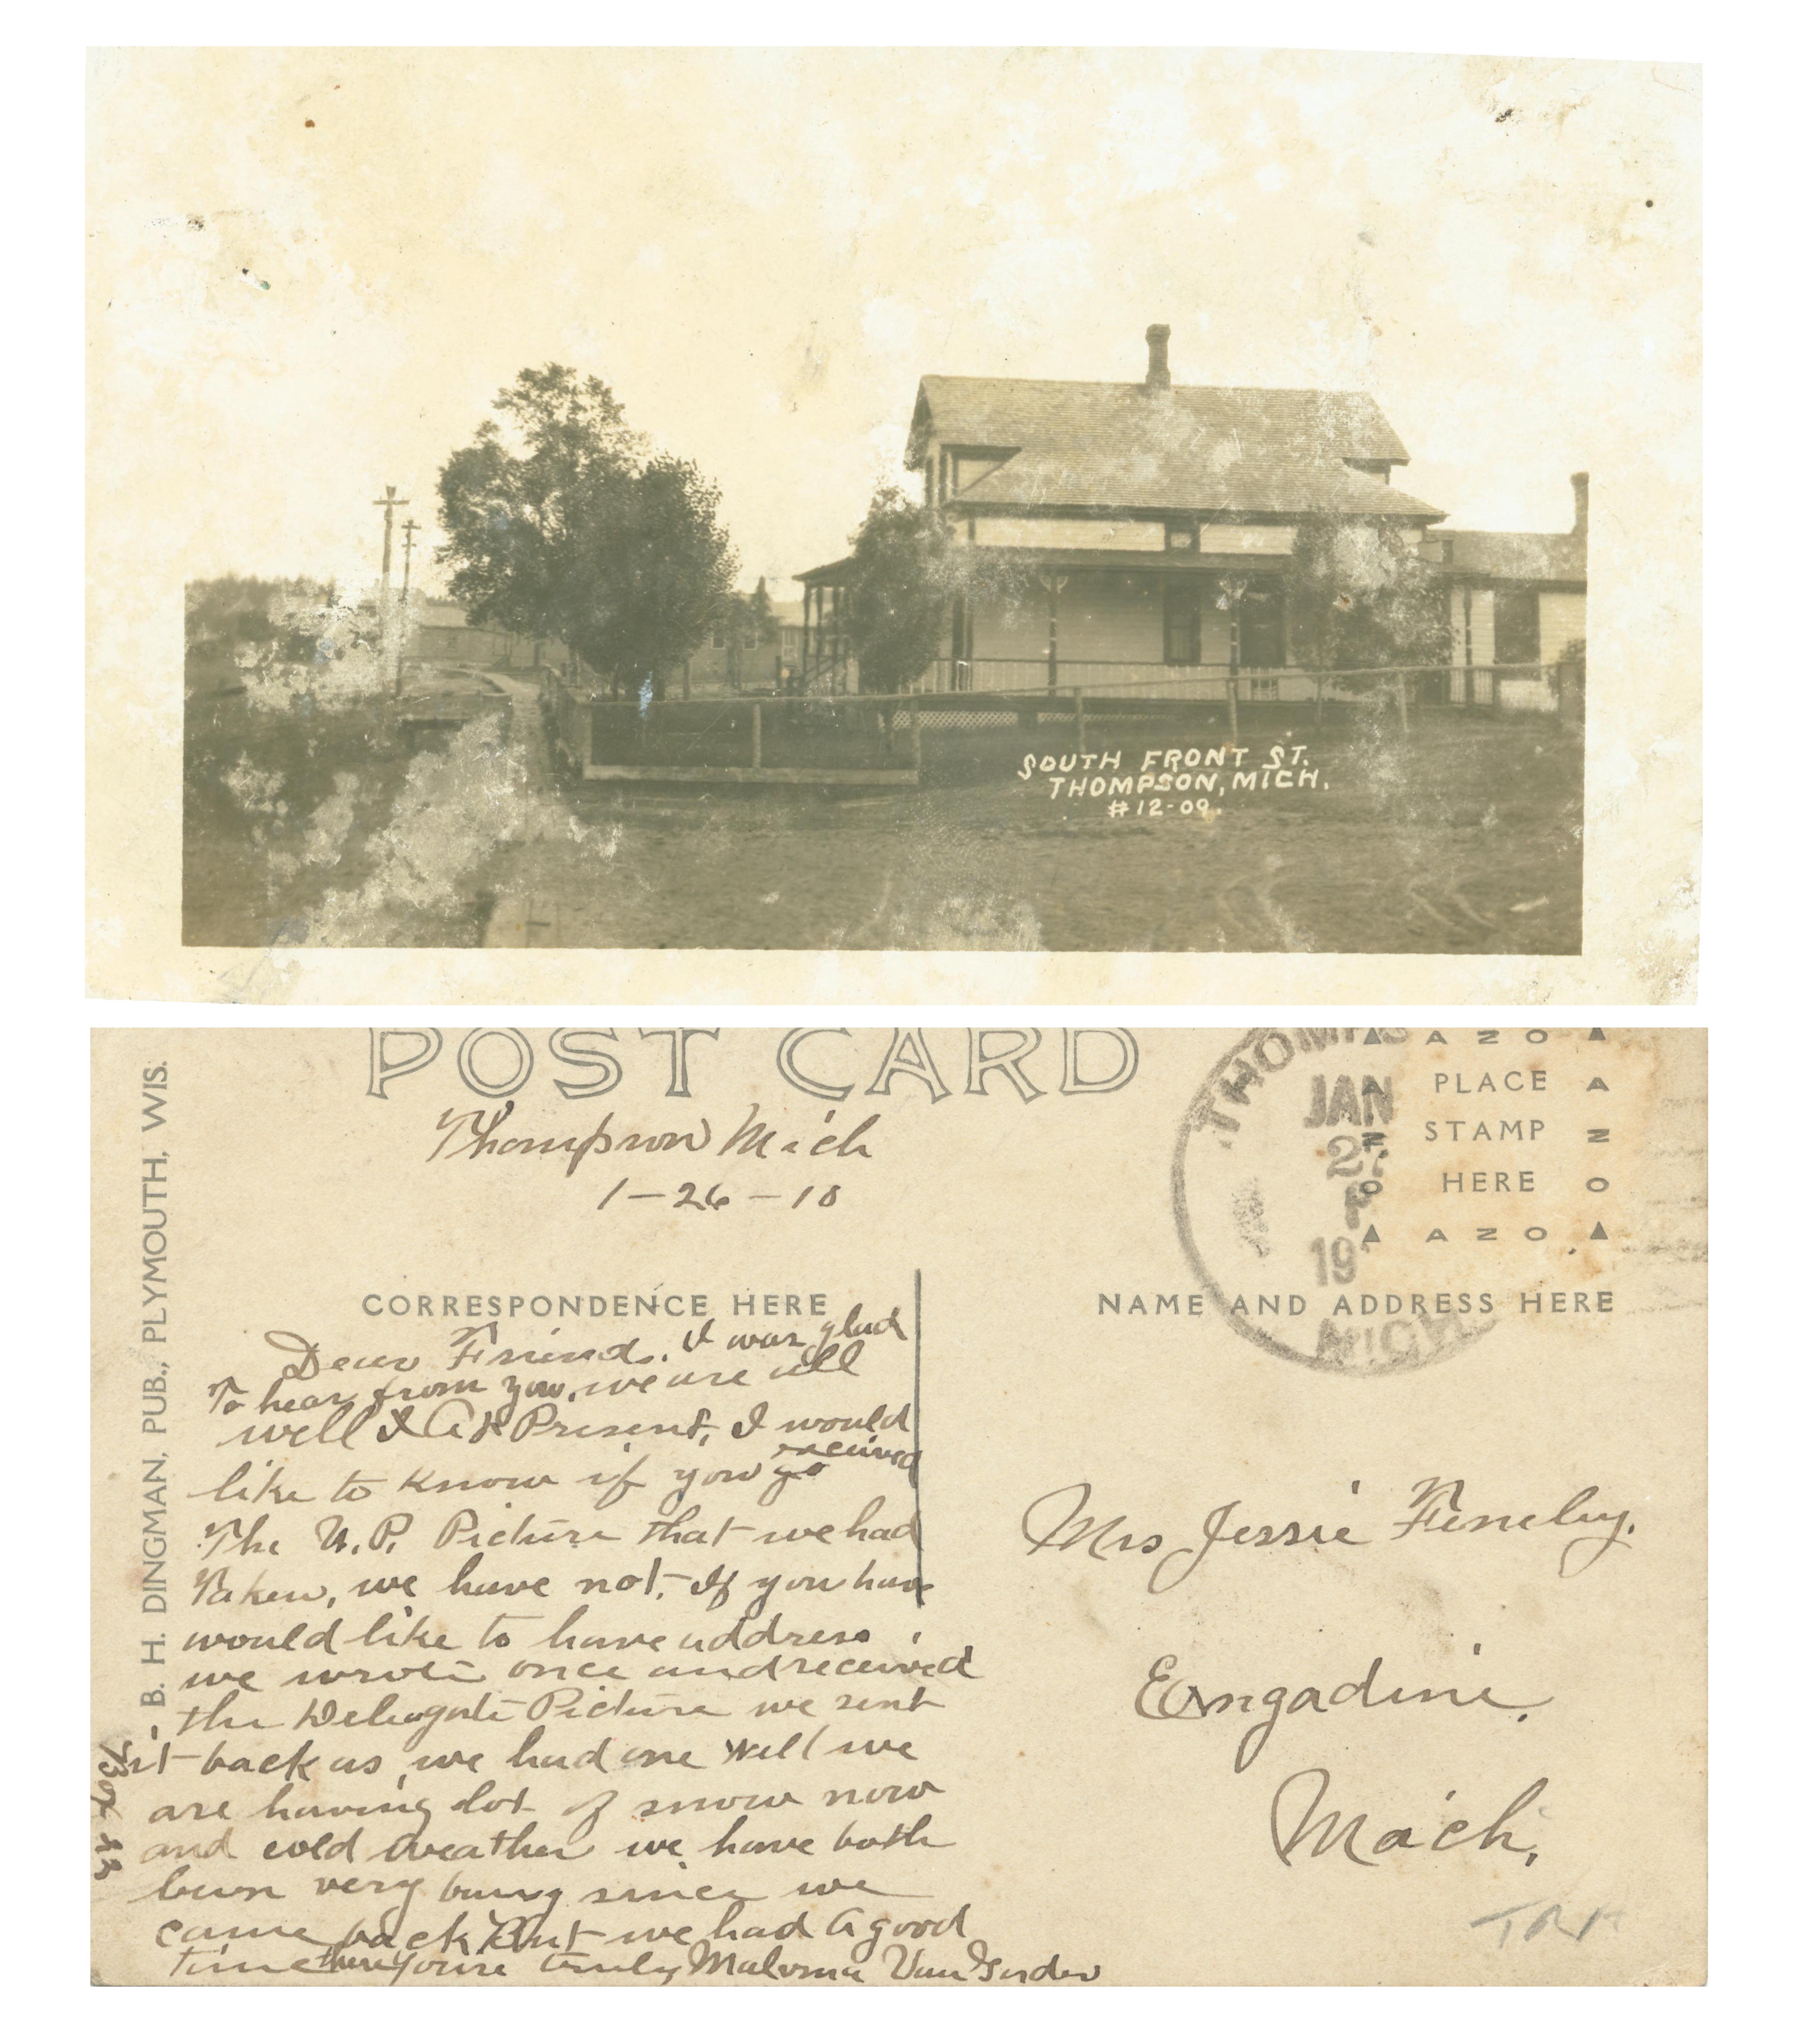 SOUTH FRONT ST.
THOMPSON, MICH.
#12-09.
POST CARD
B. H. DINGMAN, PUB., PLYMOUTH, WIS.
Thompson Mich
1-26-10
THOMPS
JAN
27
P
19
MICH
AZO
PLACE
STAMP
HERE
AZO
AZO
AZO
CORRESPONDENCE HERE
NAME AND ADDRESS HERE
Dear Friend. I was glad
To hear from you, we are all
well & At Present, I would
like to know if you received
The U.P. Picture that we had
Taken, we have not. If you have
would like to have address
we wrote once and received
the Delegate Picture we sent
it back as we had one Well we
are having lot of snow now
and cold weather we have both
been very busy since we
came back But we had A good
time there yours truly Malvina Van
Mrs Jessie
Engadine.
Mich.